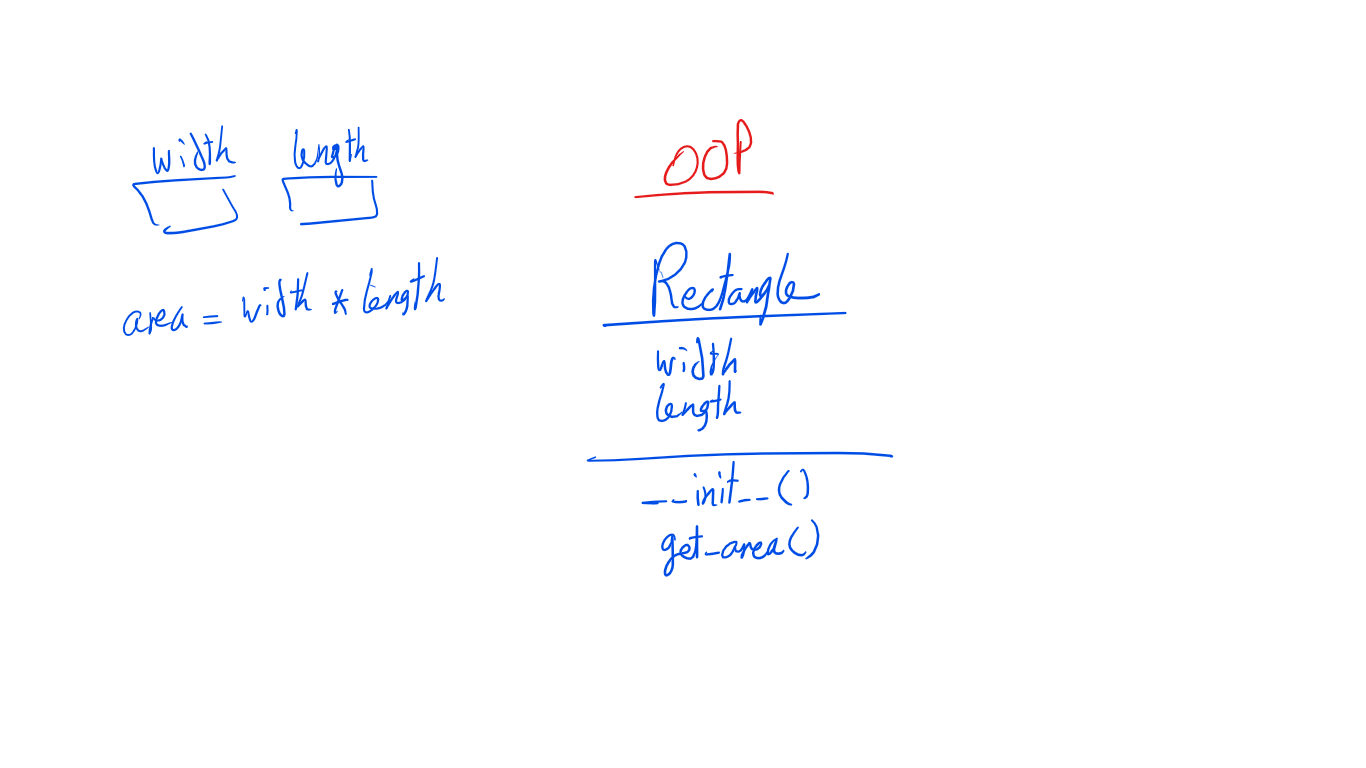 width length
area = width * length
OOP
Rectangle
width
length
__init__()
get_area()